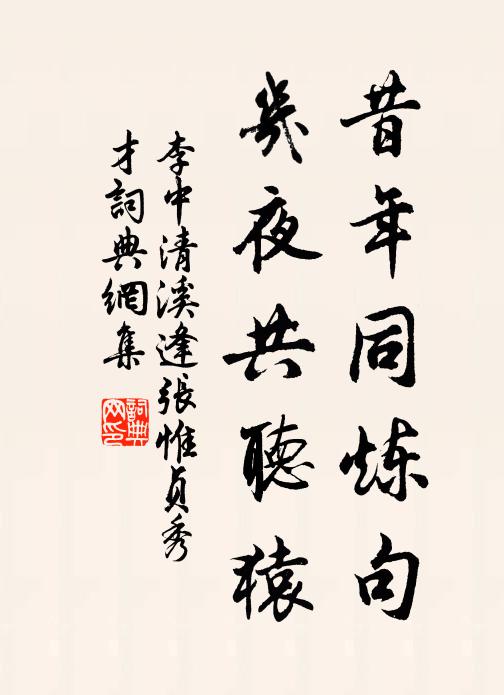 昔年同炼句
幾夜共聽猿
李中清溪逢張惟貞秀
才詞典網集
詞典
网印